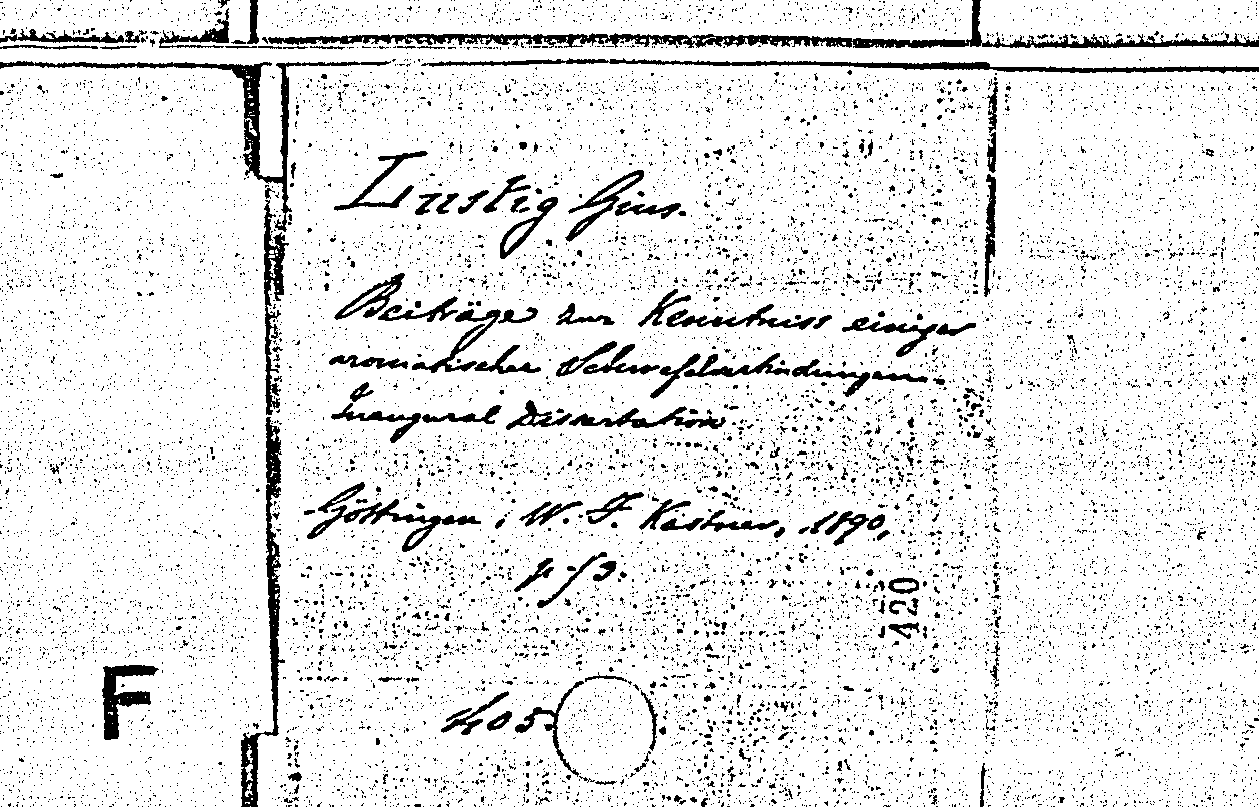 Lustig Gius.
Beiträge zur Kenntniss einiger
aromatischer Schwefelverbindungen.
Inaugural Dissertation
Göttingen, W. F. Kastner, 1890,
420
F
405.